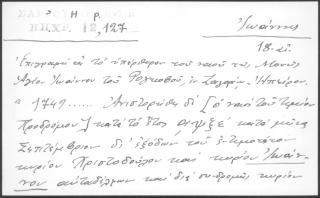 Η Ρ.
ΗΠΧΡ. 12, 127
Ἰωάννης
18. αἰ.
Ἐπιγραφὴ εἰς τὸ ὑπέρθυρον τοῦ ναοῦ τῆς Μονῆς
Ἁγίου Ἰωάννου τοῦ Ῥογκοβοῦ, ἐν Ζαγορίῳ, Ἠπείρου.
« 1749 ...... Ἀνιστορίθη δὲ [ὁ ναὸς τοῦ Τιμίου
Προδρόμου] κατὰ τὸ ἔτος αψμξε κατὰ μῆνα
Σεπτέμβριον δι' ἐξόδων τοῦ ἐντιμοτάτου
κυρίου Χριστοδούλου καὶ κυρίου Ἰωάν-
νου αὐταδέλφων καὶ διὰ συνδρομῆς κυρίου